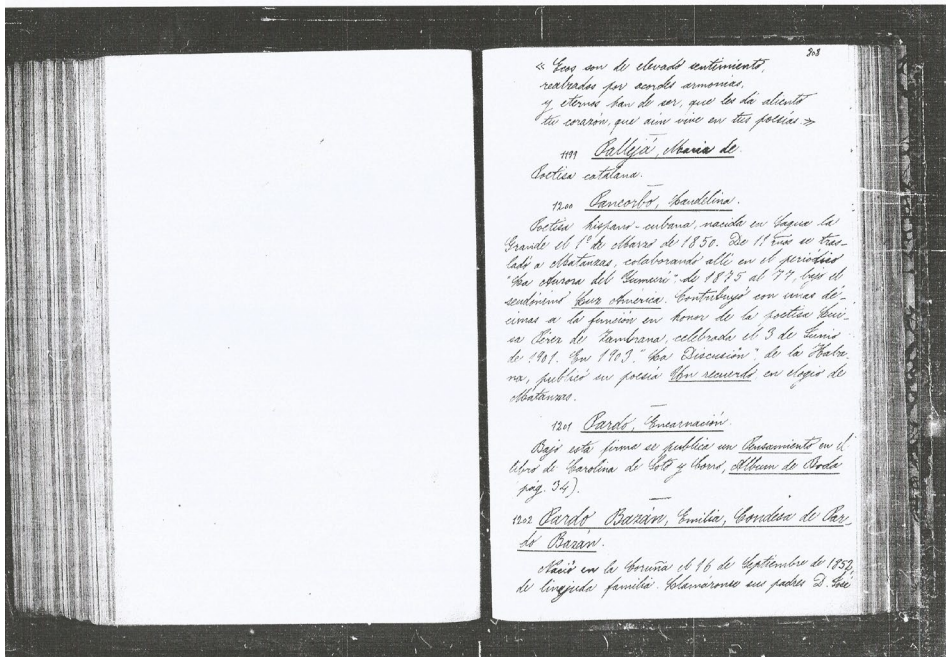 308
« Ecos son de elevado sentimiento,
realzados por acordes armonías,
y eternos han de ser, que les da aliento
tu corazón, que aún vive en tus poesías.»
1199 Pallejá, María de
Poetisa catalana.
1200 Pancorbo, Landelina.
Poetisa hispano-cubana, nacida en Sagua la
Grande el 1º de Marzo de 1850. De 11 años se tras-
ladó a Matanzas, colaborando allí en el periódico
"La Aurora del Yumurí" de 1875 al 77, bajo el
seudónimo Luz América. Contribuyó con unas dé-
cimas a la función en honor de la poetisa Lui-
sa Pérez de Zambrana, celebrada el 3 de Junio
de 1901. En 1903. "La Discusión", de la Haba-
na, publicó en poesía Un recuerdo en elogio de
Matanzas.
1201 Pardo, Encarnación.
Bajo esta firma se publica un Pensamiento en el
libro de Carolina de Soto y Corro, Album de Boda
pág. 34).
1202 Pardo Bazán, Emilia, Condesa de Par-
do Bazán.
Nació en la Coruña el 16 de Septiembre de 1852,
de linajuda familia. Llamáronse sus padres D. José